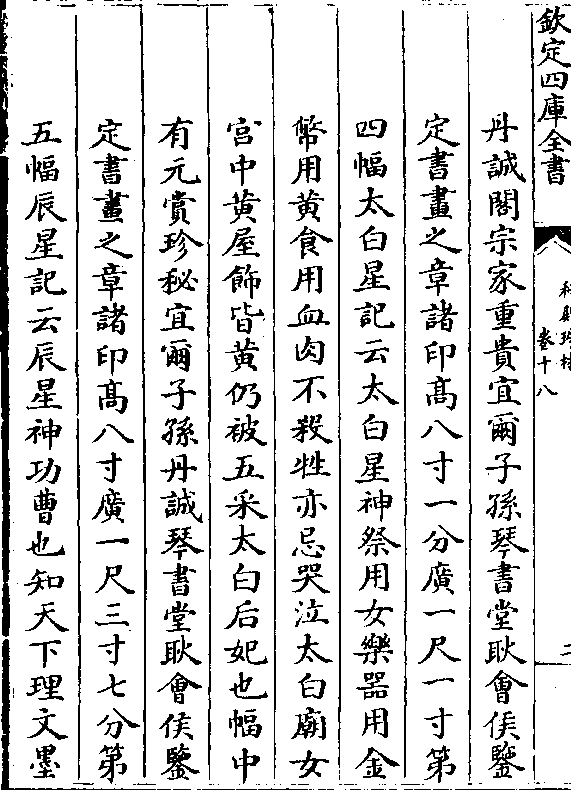 欽定四庫全書
卷十八
二
丹誠閣宗家重貴宜爾子孫琴書堂耿會侯鑒
定書畫之章諸印高八寸一分廣一尺一寸第
四幅太白星記云太白星神祭用女樂器用金
幣用黄食用血肉不殺牲亦忌哭泣太白廟女
宫中黄屋飾皆黄仍被五采太白后妃也幅中
有元賞珍秘宜爾子孫丹誠琴書堂耿會侯鑒
定書畫之章諸印髙八寸廣一尺三寸七分第
五幅辰星記云辰星神功曹也知天下理文墨